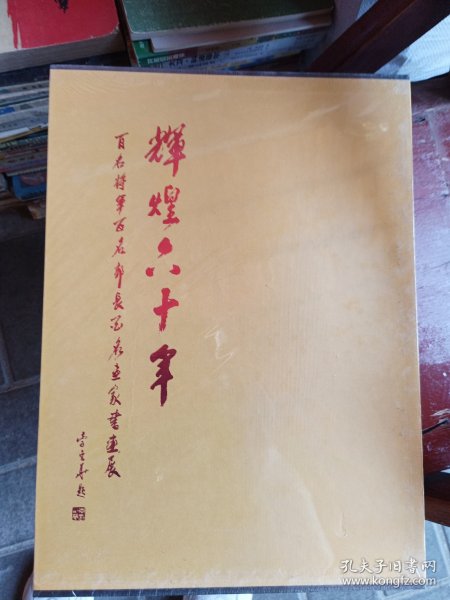 輝煌六十年
百名将军百名部长百名画家书画展
孔夫子旧书网
www.kongfz.com